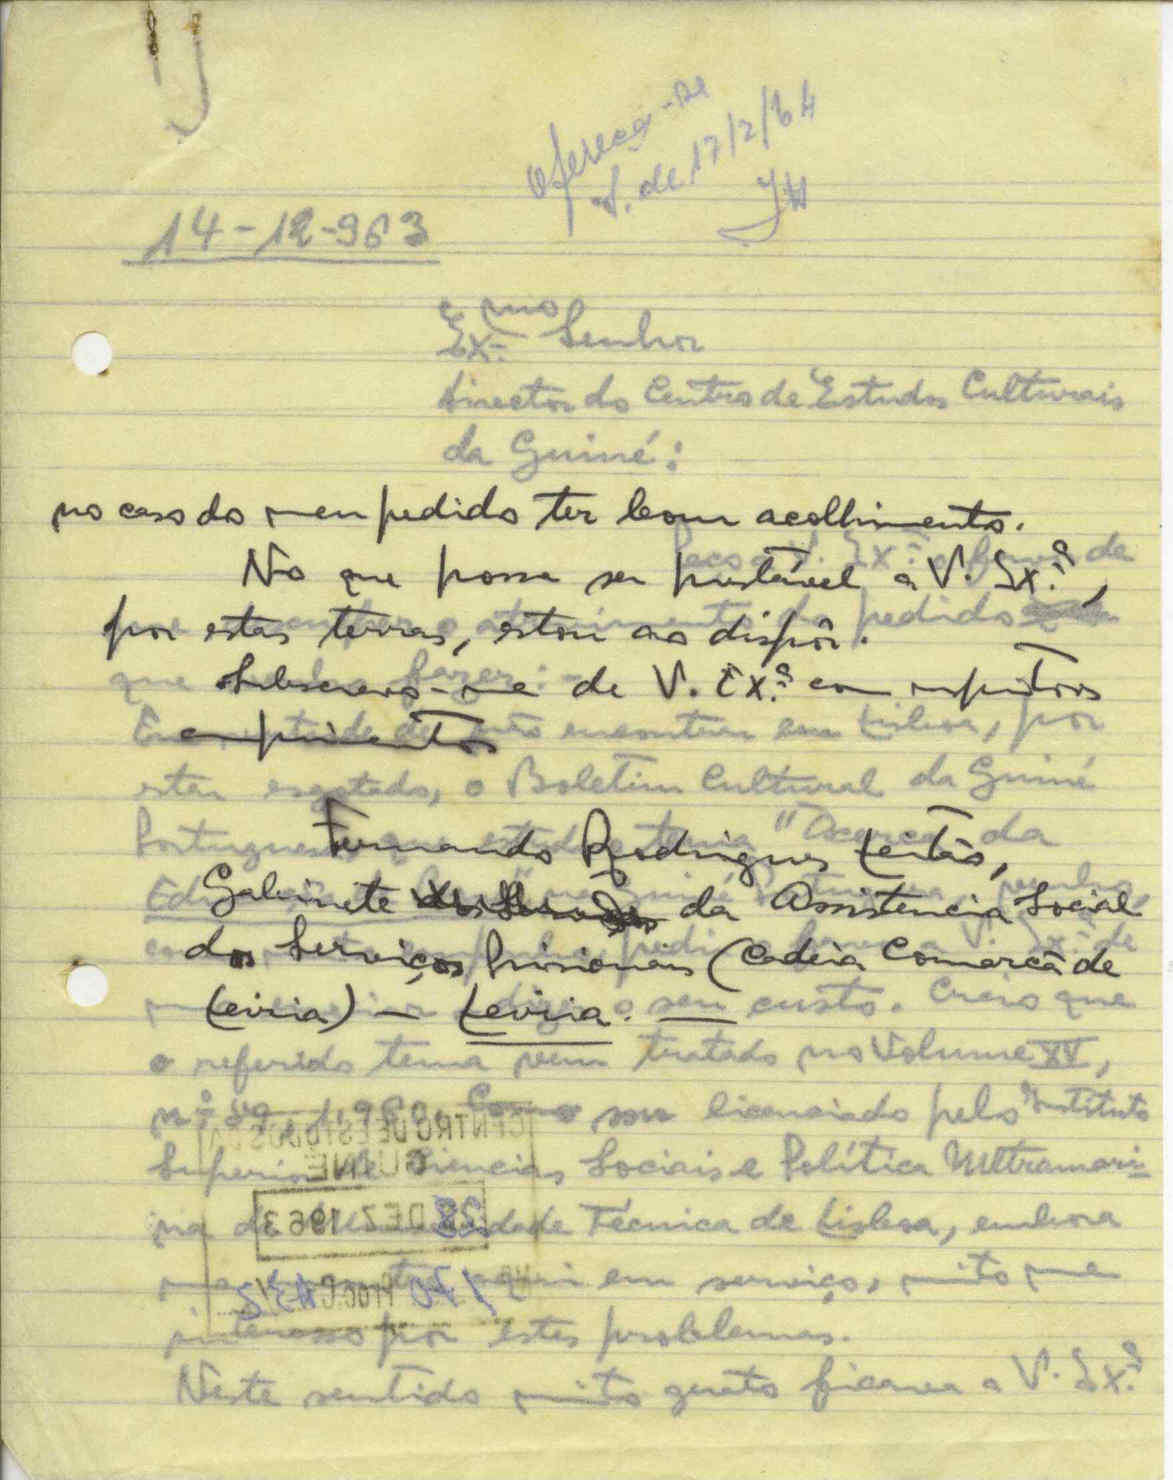 Ofereceu-se
of. de 17/2/64
14-12-963
Ex.mo Senhor
Director do Centro de Estudos Culturais
da Guiné:
no caso do meu pedido ter bom acolhimento.
Peço a V. Ex.ª o favor de
No que possa ser prestável a V. Ex.ª,
pedido
por estas terras, estou ao dispôr.
que fazer:
Subscrevo-me de V. Ex.ª com respeitosos
não encontrar em Lisboa, por
cumprimentos
estar esgotado, o Boletim Cultural da Guiné
Portuguesa "Acerca da
Fernando Rodrigues Leitão,
Gabinete da Assistencia Social
V. Ex.ª de
dos Serviços Prisionais (Cadeia Comarcã de
o seu custo. Creio que
Leiria) — Leiria. —
o referido tema vem tratado no Volume XV,
Como sou licenciado pelo Instituto
CENTRO DE ESTUDOS DA
GUINÉ
Superior de Ciencias Sociais e Política Ultramari-
28 DEZ 1963
na da Universidade Técnica de Lisboa, embora
em serviço, muito me
PROC.
interesso por estes problemas.
Neste sentido muito grato ficarei a V. Ex.ª